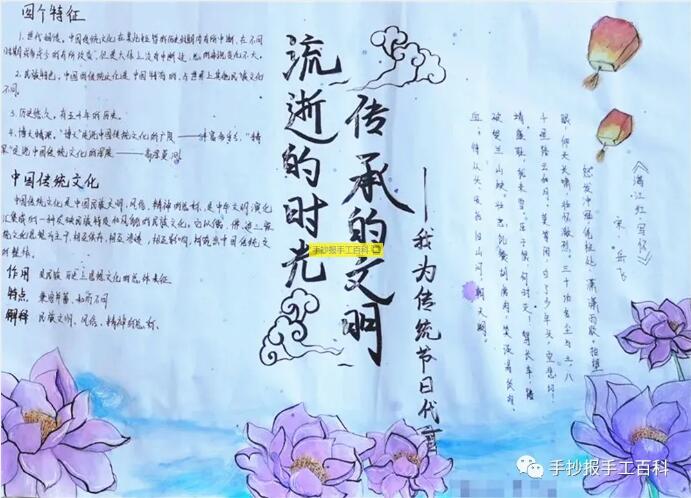 四个特征
1. 世代相传。中国传统文化在某些短暂的历史时期内有所中断,在不同
的历史时期或多或少的有所改变,但是大体上没有中断过,总的来说变化不大。
2. 民族特色。中国的传统文化是中国特有的,与世界上其他民族文化
不同。
3. 历史悠久。有五千年的历史。
4. 博大精深。“博大”是说中国传统文化的广度——丰富多彩,“精
深”是说中国传统文化的深度——高深莫测。
中国传统文化
中国传统文化是中国民族文明,风俗,精神的总称,是中华文明演化
汇集成的一种反映民族特质和风貌的民族文化。它以儒、佛、道三家
文化思想为主干,相互依存,相互渗透,相互影响,构筑出中国传统文
化整体。
作用 民族历史上思想文化的总体表征
特点 兼容并蓄、和而不同
解释 民族文明、风俗、精神的总称。
流逝的时光
传承的文明
——我为传统节日代言
手抄报手工百科
《满江红·写怀》
宋 岳飞
怒发冲冠,凭栏处、潇潇雨歇。抬望
眼,仰天长啸,壮怀激烈。三十功名尘与土,八
千里路云和月。莫等闲,白了少年头,空悲切!
靖康耻,犹未雪。臣子恨,何时灭!驾长车,踏
破贺兰山缺。壮志饥餐胡虏肉,笑谈渴饮匈奴
血。待从头、收拾旧山河,朝天阙。
手抄报手工百科